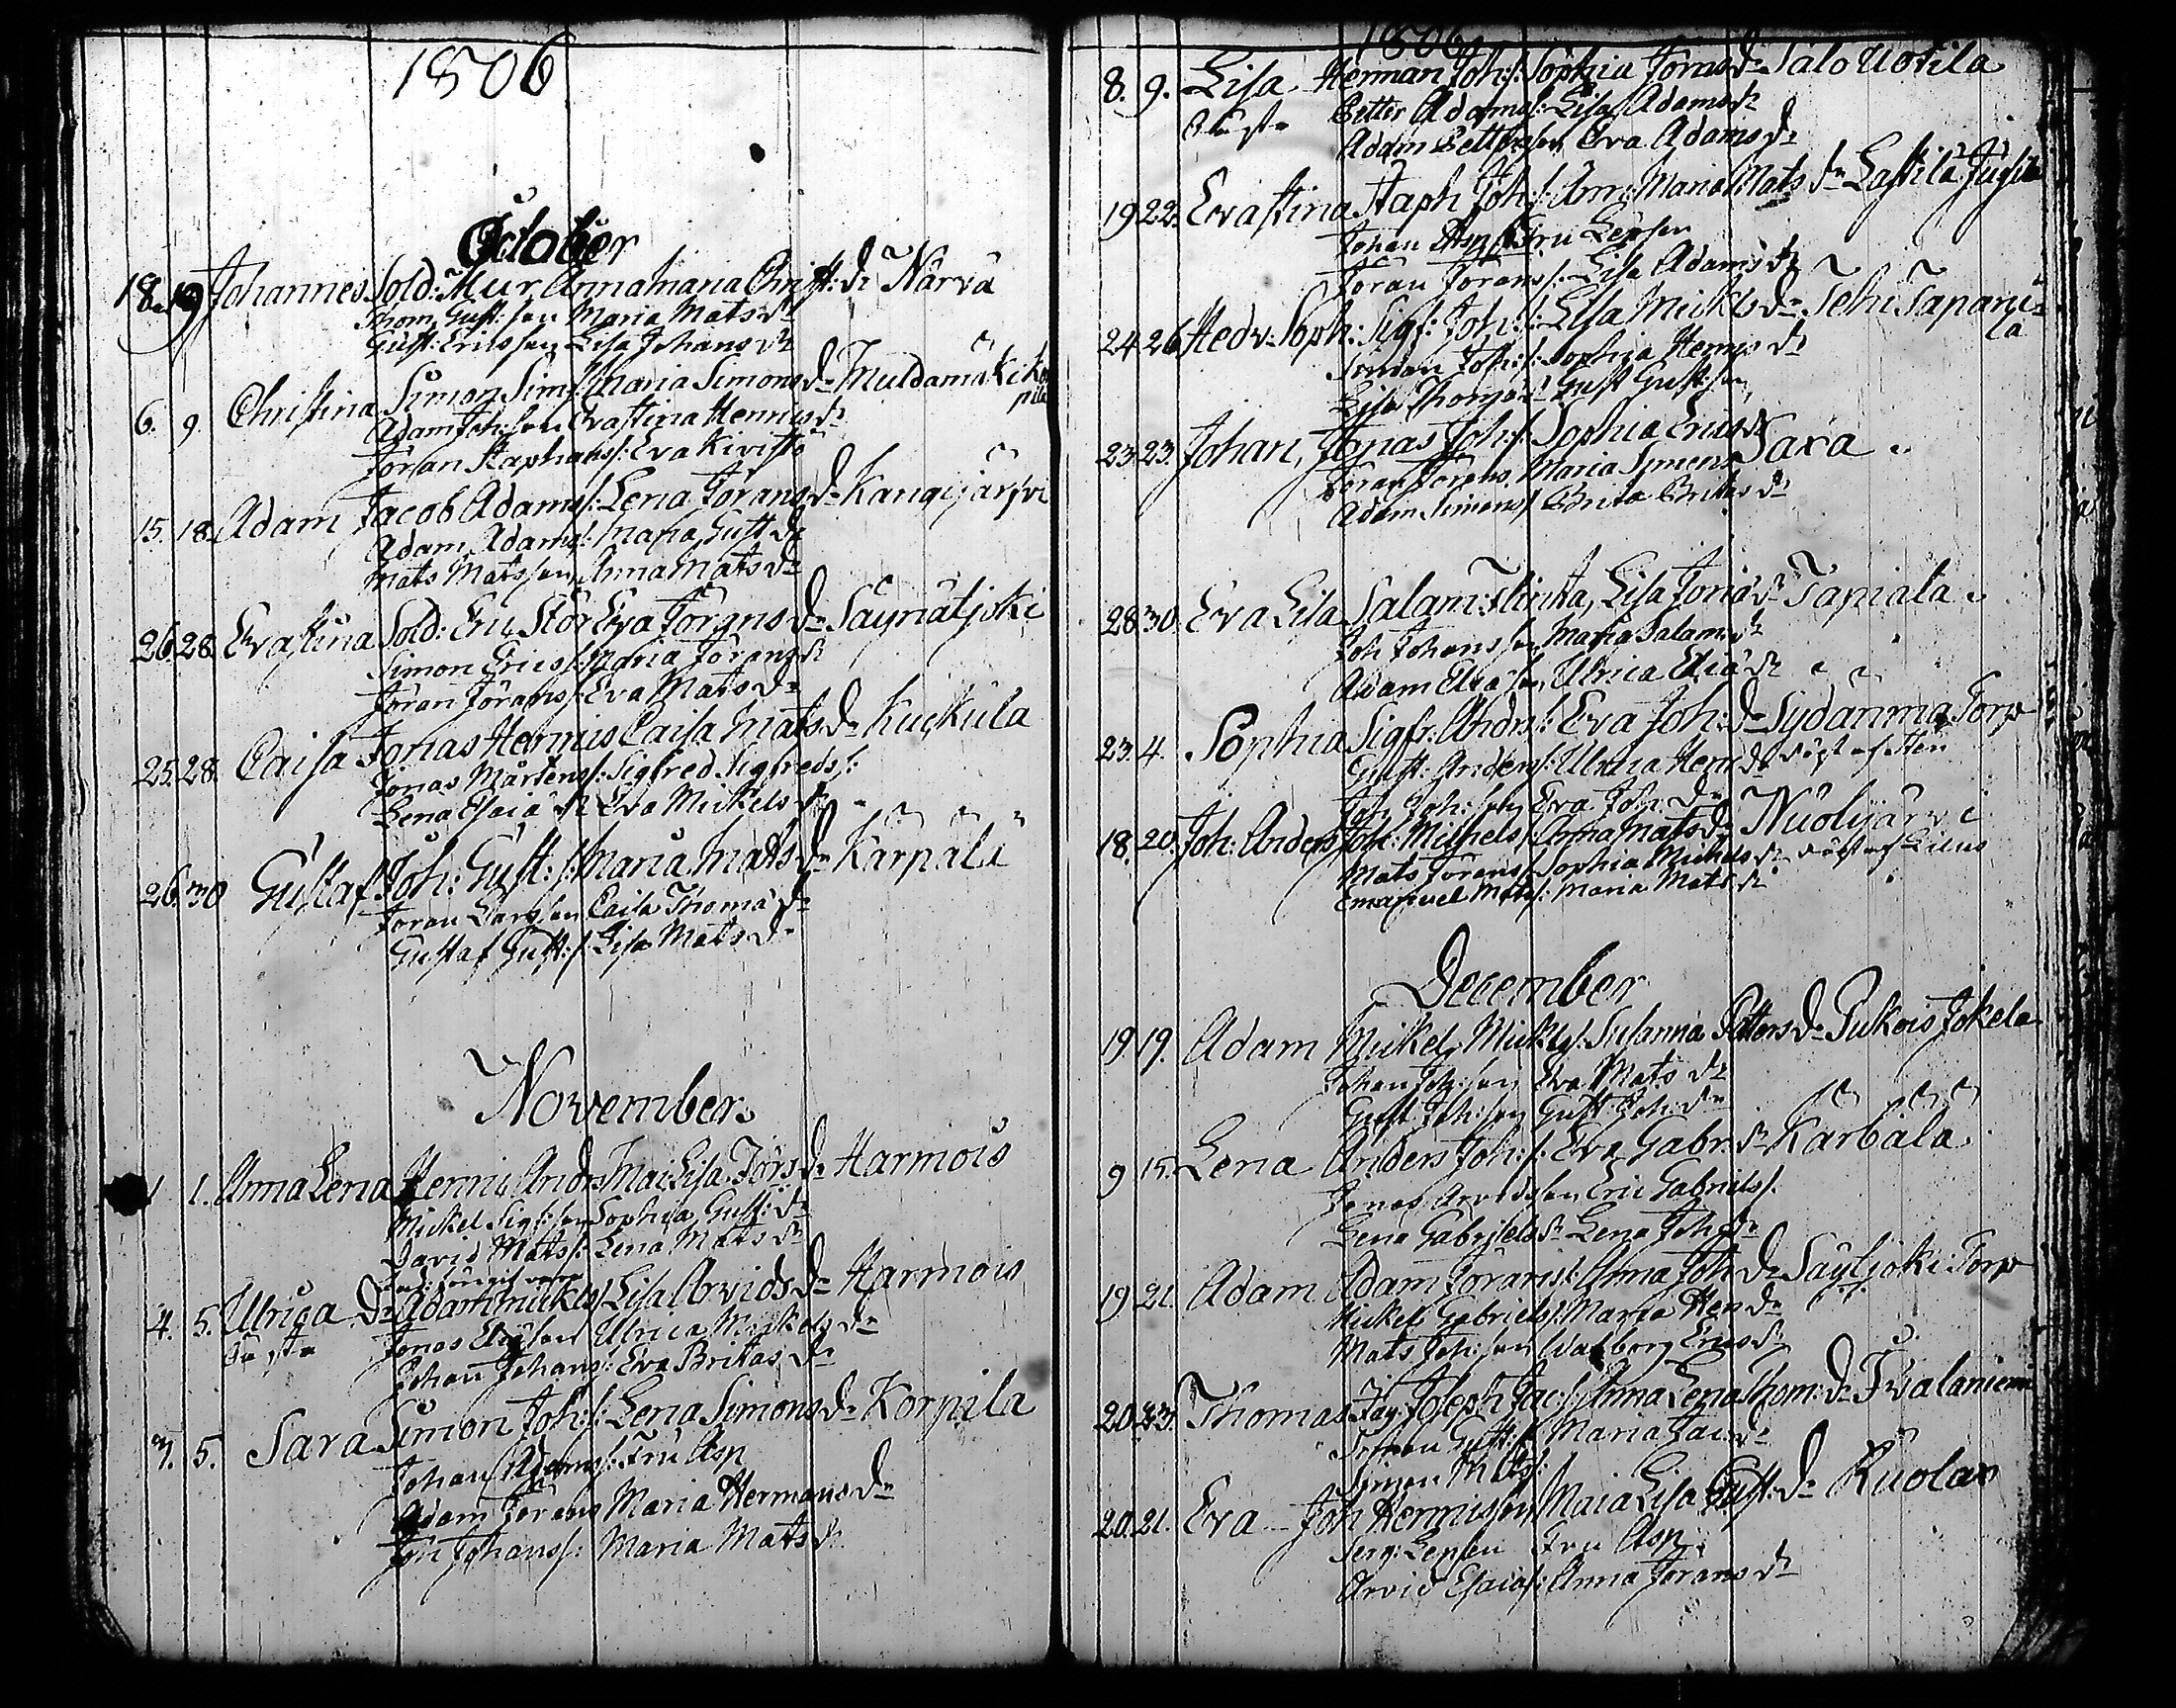 1806
October
18. 19 Johannes Sold: Mur Anna Maria Christ: dr Närvä
Thom Gust: son Maria Mats dr
Gust: Ericsson Lisa Johans dr
6. 9. Christina Simon Sim s: Maria Simons dr Muldamäki
Adam Joh: son Evastina Hennus dr
Jöran Staphans: Eva Kivistö
15. 18. Adam Jacob Adams: Lena Jörans dr Kangijärfvi
Adam Adams: Maria Gust dr
Mats Matsson Anna Mats dr
26. 28. Evastina Sold: Eric Stör Eva Jörans dr Säynätjoki
Simon Erics: Maria Jörans dr
Jöran Jörans: Eva Mats dr
25. 28. Caisa Jonas Hennus Caisa Mats dr Kuckula
Jonas Mårtens: Sigfred Sigfreds:
Lena Esaiæ dr Eva Mickels dr
26. 30 Gustaf Joh: Gust: s: Maria Mats dr Kärpälä
Jöran Larsson Caisa Thomæ dr
Gustaf Gust: s: Lisa Mats dr
November
1 1. Anna Lena Henric Andrs Mai Lisa Jörs dr Harmois
Mickel Sigf: son Sophia Gust: dr
David Mats s: Lena Mats dr
4. 5. Ulrica Dr Adam Mickels: Lisa Arvids dr Harmois
Jonas Eliæson Ulrica Mickels dr
Johan Johans: Eva Britas dr
5. Sara Simon Joh: s: Lena Simons dr Korpila
Johan Adams: Fru Asp
Adam Jörans Maria Hermans dr
Johans s: Maria Mats dr
1806
8. 9. Lisa Herman Joh: s: Sophia Jörans dr Salo Uotila
Petter Adams: Lisa Adams dr
Adam Pettersson Eva Adams dr
19 22. Evastina Staph Joh: s: Ann: Maria Mats dr Lastila
Johan Asp Fru Lepsen
Jöran Jörans: Lisa Adams dr
24 26 Hedv: Soph: Sigf: Joh: s: Lisa Mickels dr Tehi Taparu=
la
Simon Joh: s: Sophia Hennus dr
Lisa Thomæ dr Gust Gust: son
23. 23. Johan, Jonas Joh: s: Sophia Erics dr Saxa
Jöran Jörans Maria Simons
Adam Simons: Brita Britas dr
28. 30. Eva Lisa Salam: Flinta, Lisa Jonæ dr Tapiala
Joh Johansson Maria Salam: dr
Adam Eliæson Ulrica Eliæ dr
23. 4. Sophia Sigfr: Andrs: Eva Joh: dr Sydänmä Torp
Gust: Anders: Ulrica Henr dr
Joh Joh: son Eva Joh dr
18. 20. Joh: Anders Joh: Michels: Anna Mats dr Nuolijärvi
Mats Jörans: Sophia Michels dr
Emanuel Mats: Maria Mats dr
December
19. 19. Adam Mickel Mickels: Susanna Petters dr Pukois Jokela
Johan Joh: son Eva Mats dr
Gust Joh: son Gust: Joh: dr
9 15. Lena Anders Joh: s: Eva Gabr: dr Kärbälä
Jonas Arvidsson Eric Gabriels:
Lena Gabriels dr Lena Joh dr
19. 21. Adam Adam Jörans: Anna Joh dr Säytjoki Torp
Mickel Gabriels: Maria Hen dr
Mats Joh: son Walborg Erics dr
20. 23. Thomas Joseph Jac: s: Anna Lena Thom: dr
Gust: s: Maria Jac: dr
Simon Mats:
20. 21. Eva Joh Hennisson Maia Lisa Gust: dr Ruolax
Serg: Lepsen Fru Asp
Arvid Esaias: Anna Jörans dr